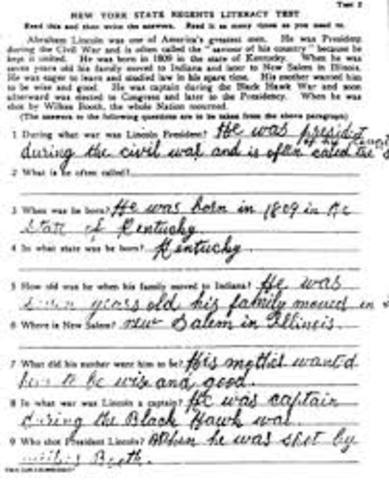 Test 2
NEW YORK STATE REGENTS LITERACY TEST
Read this and then write the answers. Read it as many times as you need to.
Abraham Lincoln was one of America's greatest men. He was President
during the Civil War and is often called the "saviour of his country" because he
kept it united. He was born in 1809 in the state of Kentucky. When he was
seven years old his family moved to Indiana and later to New Salem in Illinois.
He was eager to learn and studied law in his spare time. His mother wanted him
to be wise and good. He was captain during the Black Hawk War and soon
afterward was elected to Congress and later to the Presidency. When he was
shot by Wilkes Booth, the whole Nation mourned.
(The answers to the following questions are to be taken from the above paragraph)
1 During what war was Lincoln President? He was president
during the civil war and is often called the
2 What is he often called?
3 When was he born? He was born in 1809 in the
state of Kentucky.
4 In what state was he born? Kentucky.
5 How old was he when his family moved to Indiana? He was
seven years old his family moved in
6 Where is New Salem? new Salem in Illinois.
7 What did his mother want him to be? His mother wanted
him to be wise and good.
8 In what war was Lincoln a captain? He was captain
during the Black Hawk war.
9 Who shot President Lincoln? When he was shot by
Booth.